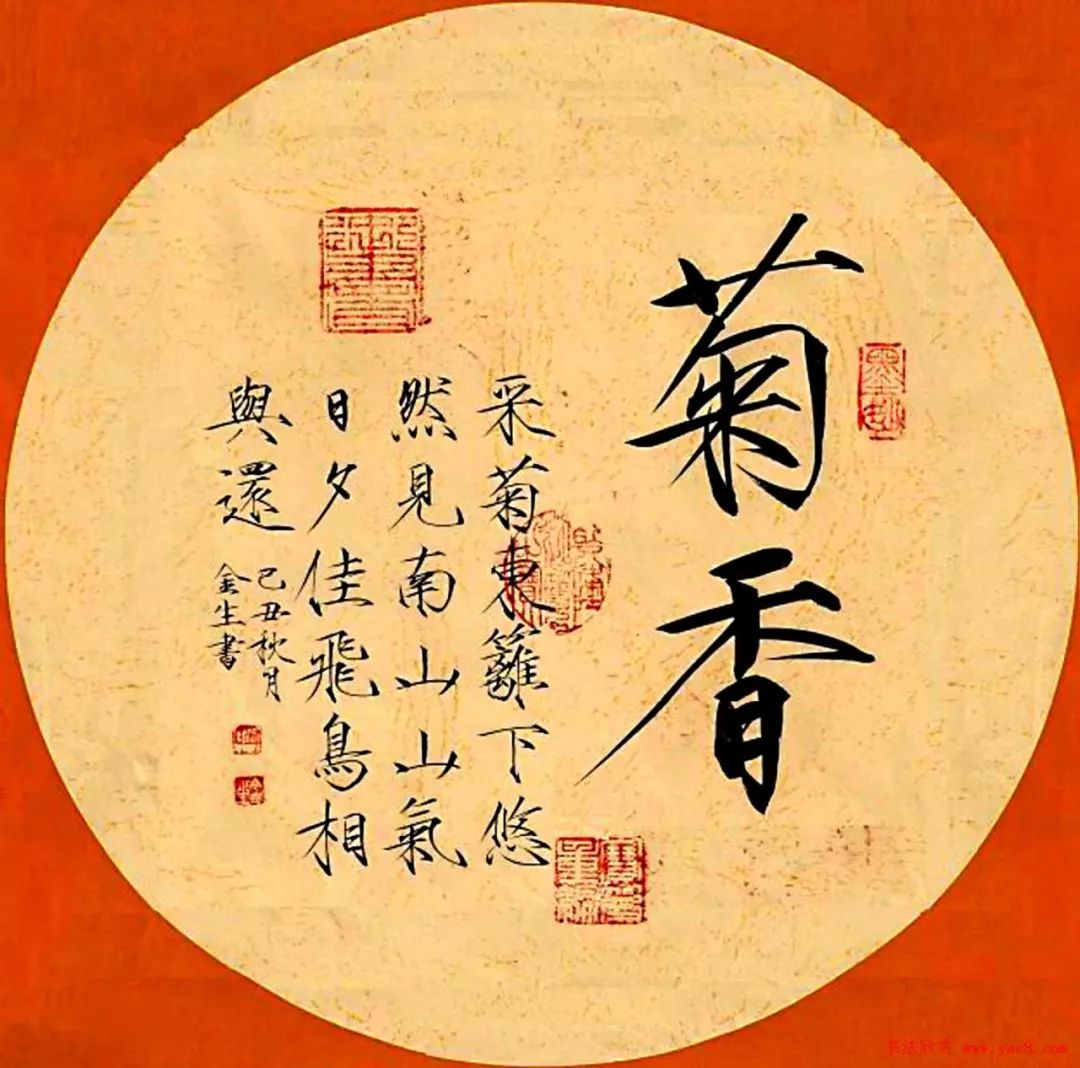 菊香
采菊東籬下悠
然見南山山氣
日夕佳飛鳥相
與還
己丑秋月
金生書
书法欣赏 www.yac8.com